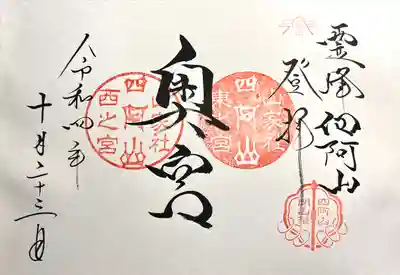 霊峰四阿山
登拝
奥宮
山家社
四阿山
東之宮
山家社
四阿山
西之宮
令和四年
十月二十三日
四阿山